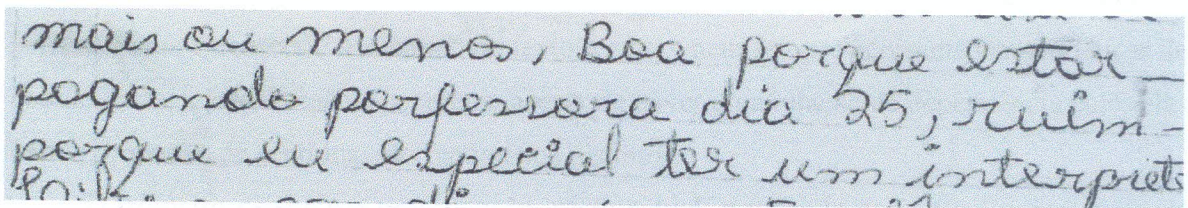 mais ou menos, Boa porque estar_
pagando porfessora dia 25, ruim-
porque eu especial ter um interprete